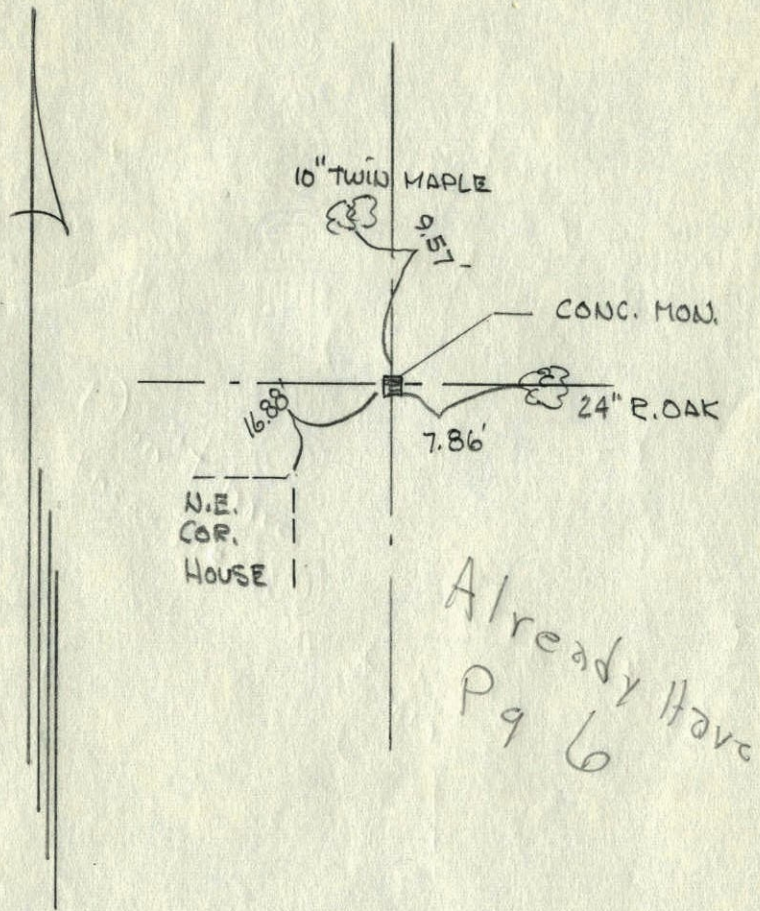 10" TWIN MAPLE
9.57
CONC. MON.
16.88'
24" R.OAK
7.86'
N.E.
COR.
HOUSE
Already Have
Pg 6